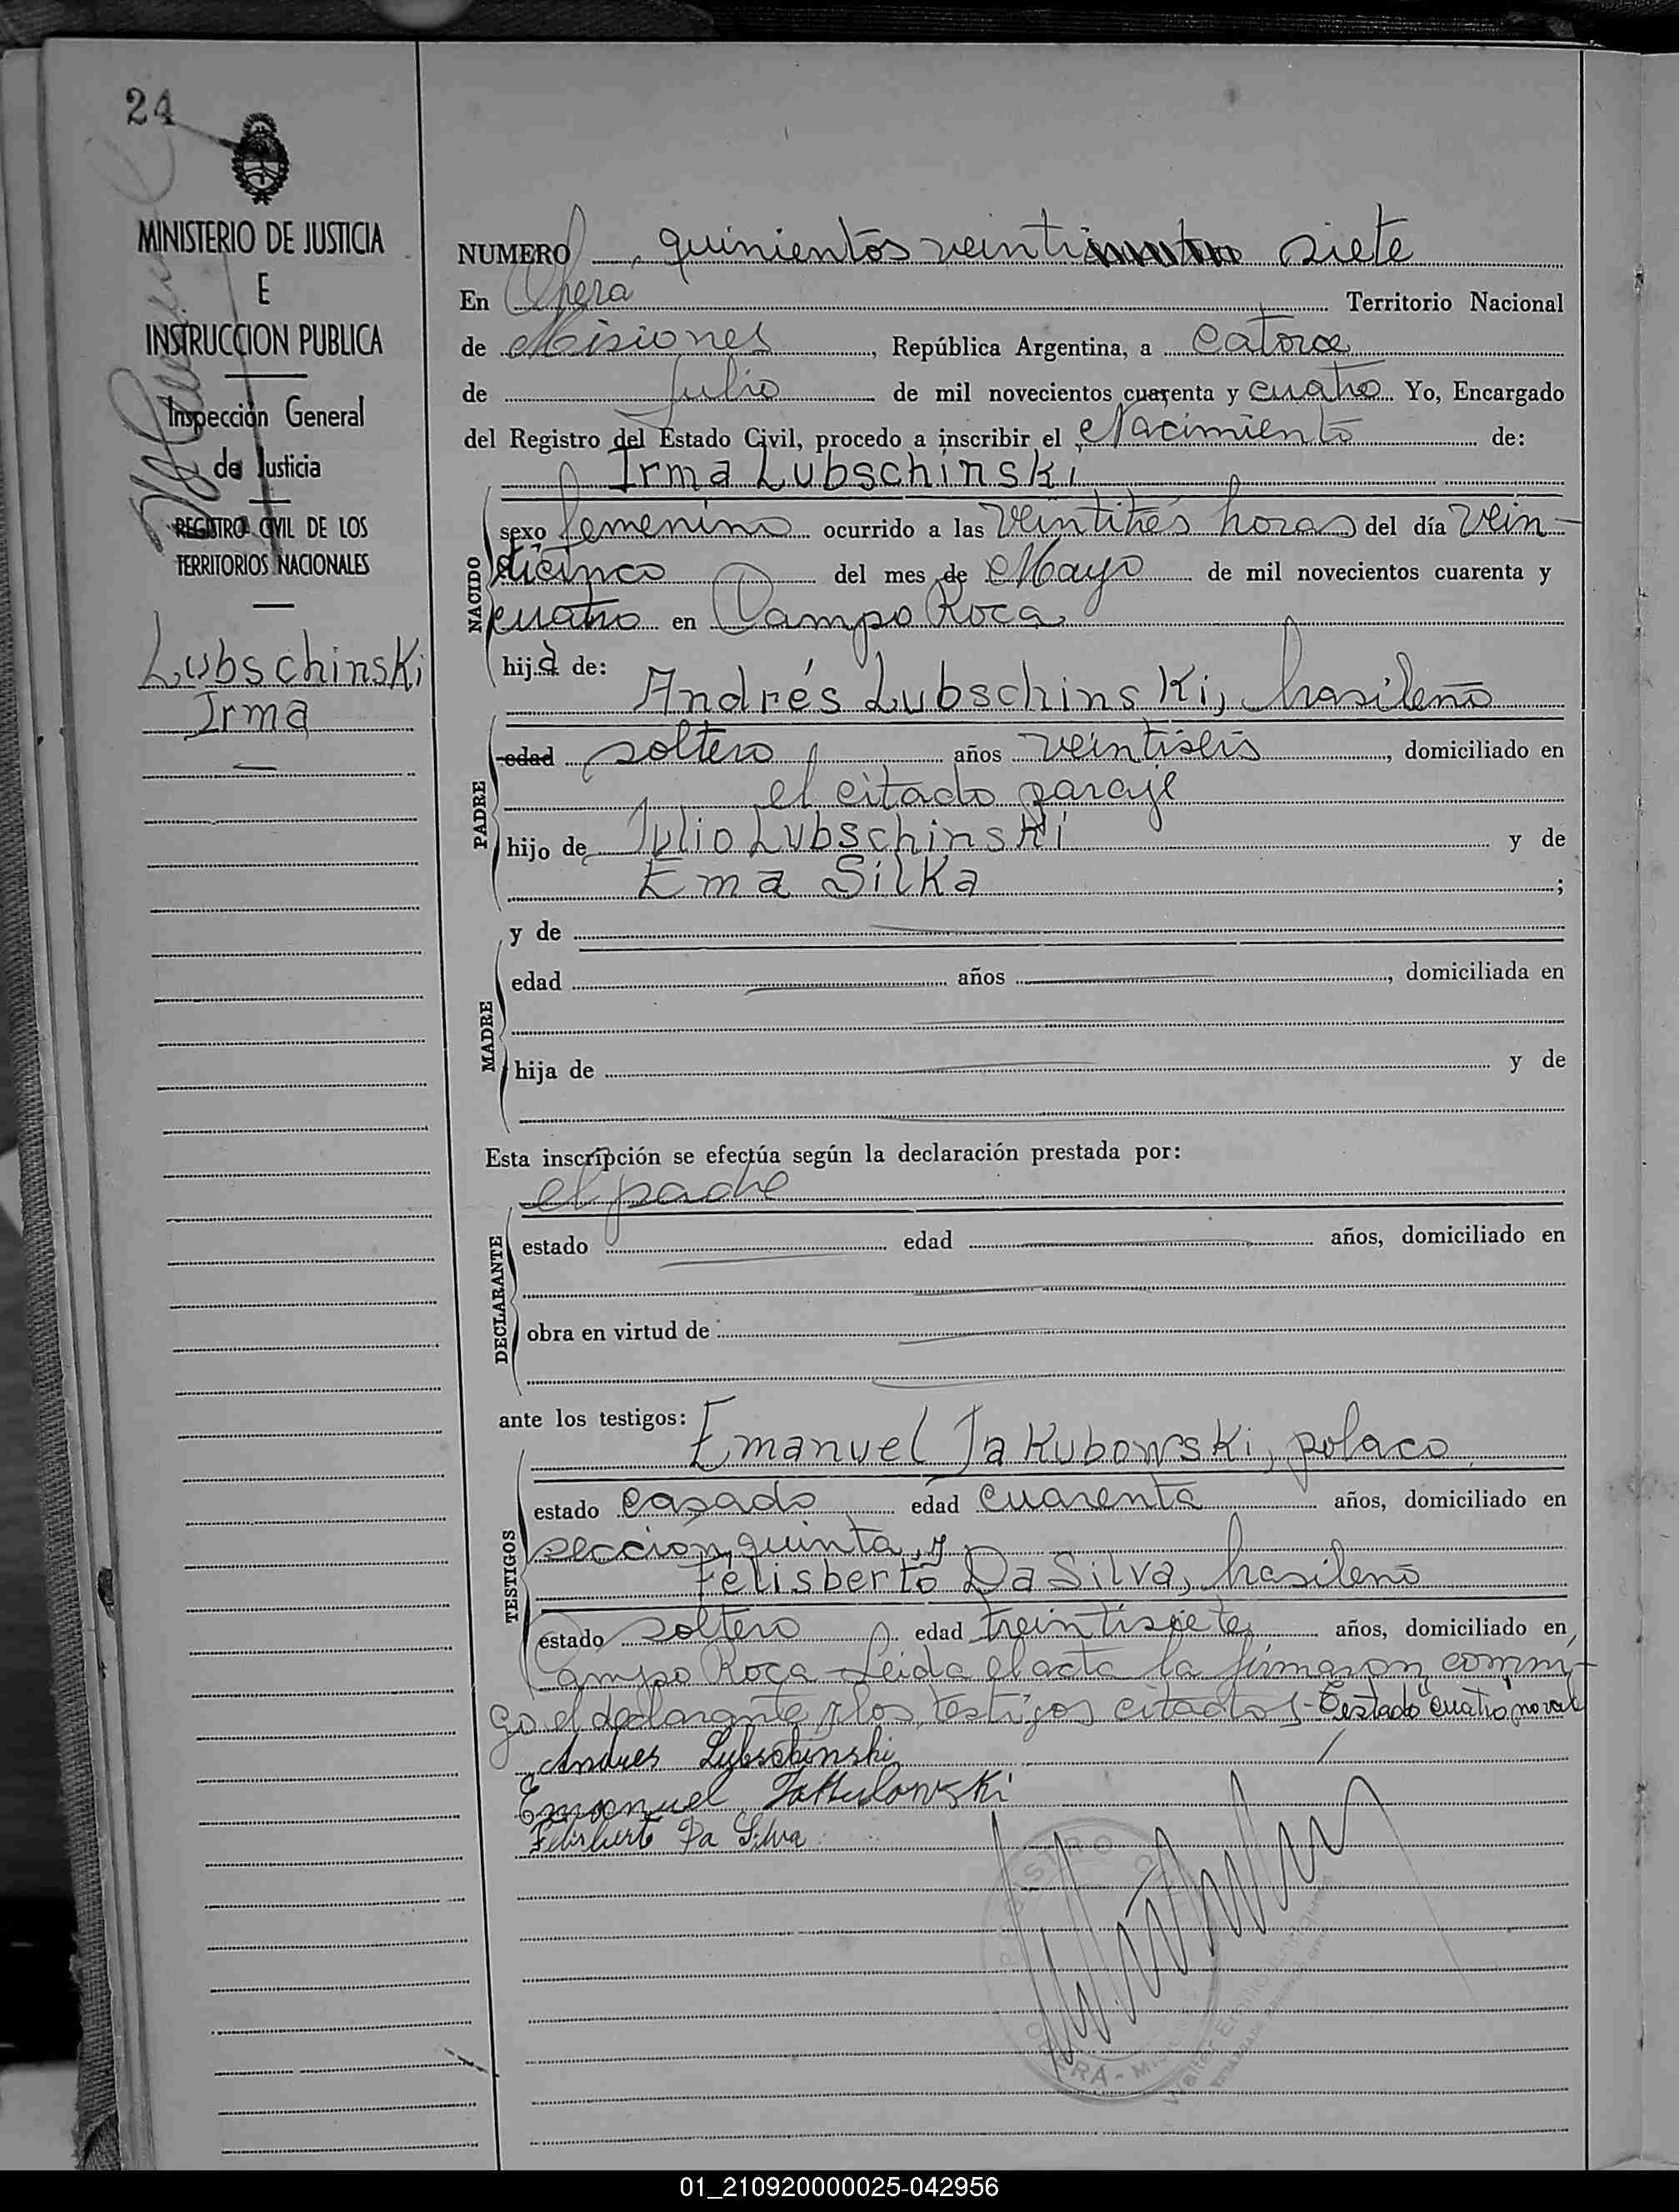 24
MINISTERIO DE JUSTICIA
E
INSTRUCCION PUBLICA
Inspección General
de Justicia
REGISTRO CIVIL DE LOS
TERRITORIOS NACIONALES
Lubschinski
Irma
NUMERO quinientos veinti siete
En Obera Territorio Nacional
de Misiones, República Argentina, a Catorce
de Julio de mil novecientos cuarenta y cuatro Yo, Encargado
del Registro del Estado Civil, procedo a inscribir el Nacimiento de:
Irma Lubschinski
NACIDO
sexo femenino ocurrido a las veintitrés horas del día vein-
ticinco del mes de Mayo de mil novecientos cuarenta y
cuatro en Campo Roca
hija de:
Andrés Lubschinski, brasileño
PADRE
edad soltero años veintiseis, domiciliado en
el citado paraje
hijo de Julio Lubschinski y de
Ema Silka ;
MADRE
y de
edad años , domiciliada en
hija de y de
Esta inscripción se efectúa según la declaración prestada por:
el padre
DECLARANTE
estado edad años, domiciliado en
obra en virtud de
ante los testigos:
Emanuel Jakubowski, polaco
TESTIGOS
estado casado edad cuarenta años, domiciliado en
sección quinta, y
Felisberto Da Silva, brasileño
estado soltero edad treintisiete años, domiciliado en
Campo Roca Leida el acta la firmaron conmi-
go el declarante y los testigos citados.- Testado cuatro no vale
Andres Lubschinski
Emanuel Jakubowski
Felisberto Da Silva
REGISTRO CIVIL
OBERA - Misiones
01_210920000025-042956